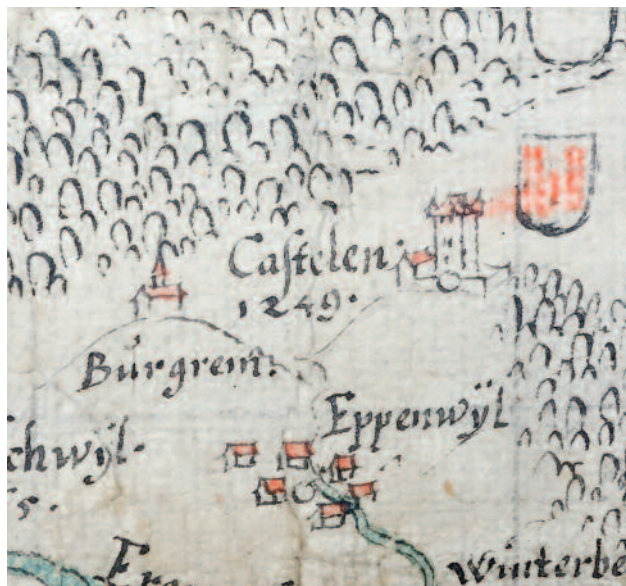 Castelen.
1249.
Burgrein.
Eppenwÿl
chwÿl.
5.
Winterbe